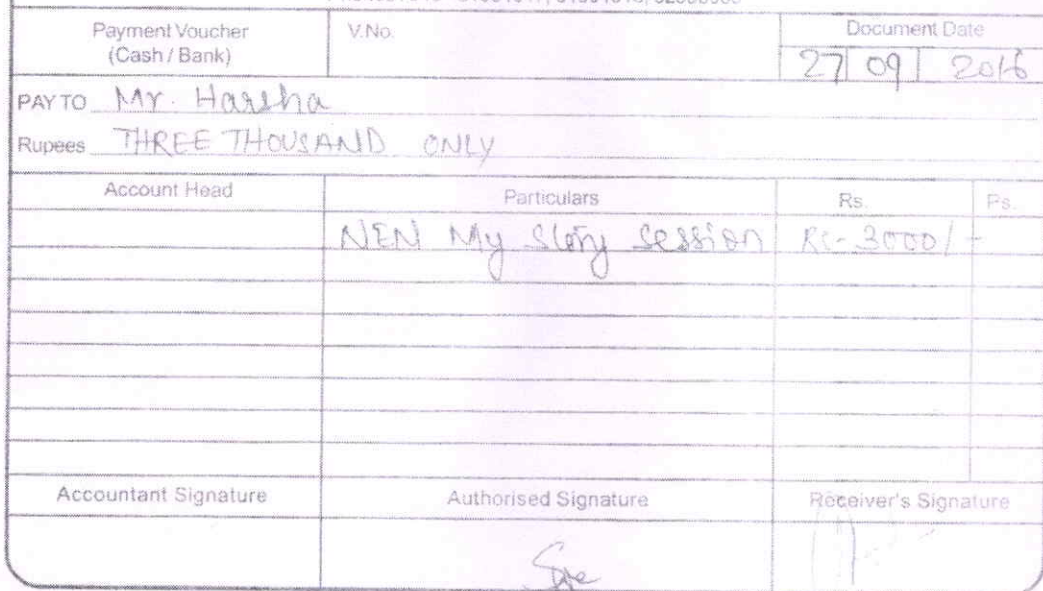 Payment Voucher
(Cash / Bank)
V.No.
Document Date
27 09 2016
PAY TO Mr. Harsha
Rupees THREE THOUSAND ONLY
Account Head Particulars Rs. Ps.
NEN My Story Session Rs-3000/-
Accountant Signature Authorised Signature Receiver's Signature